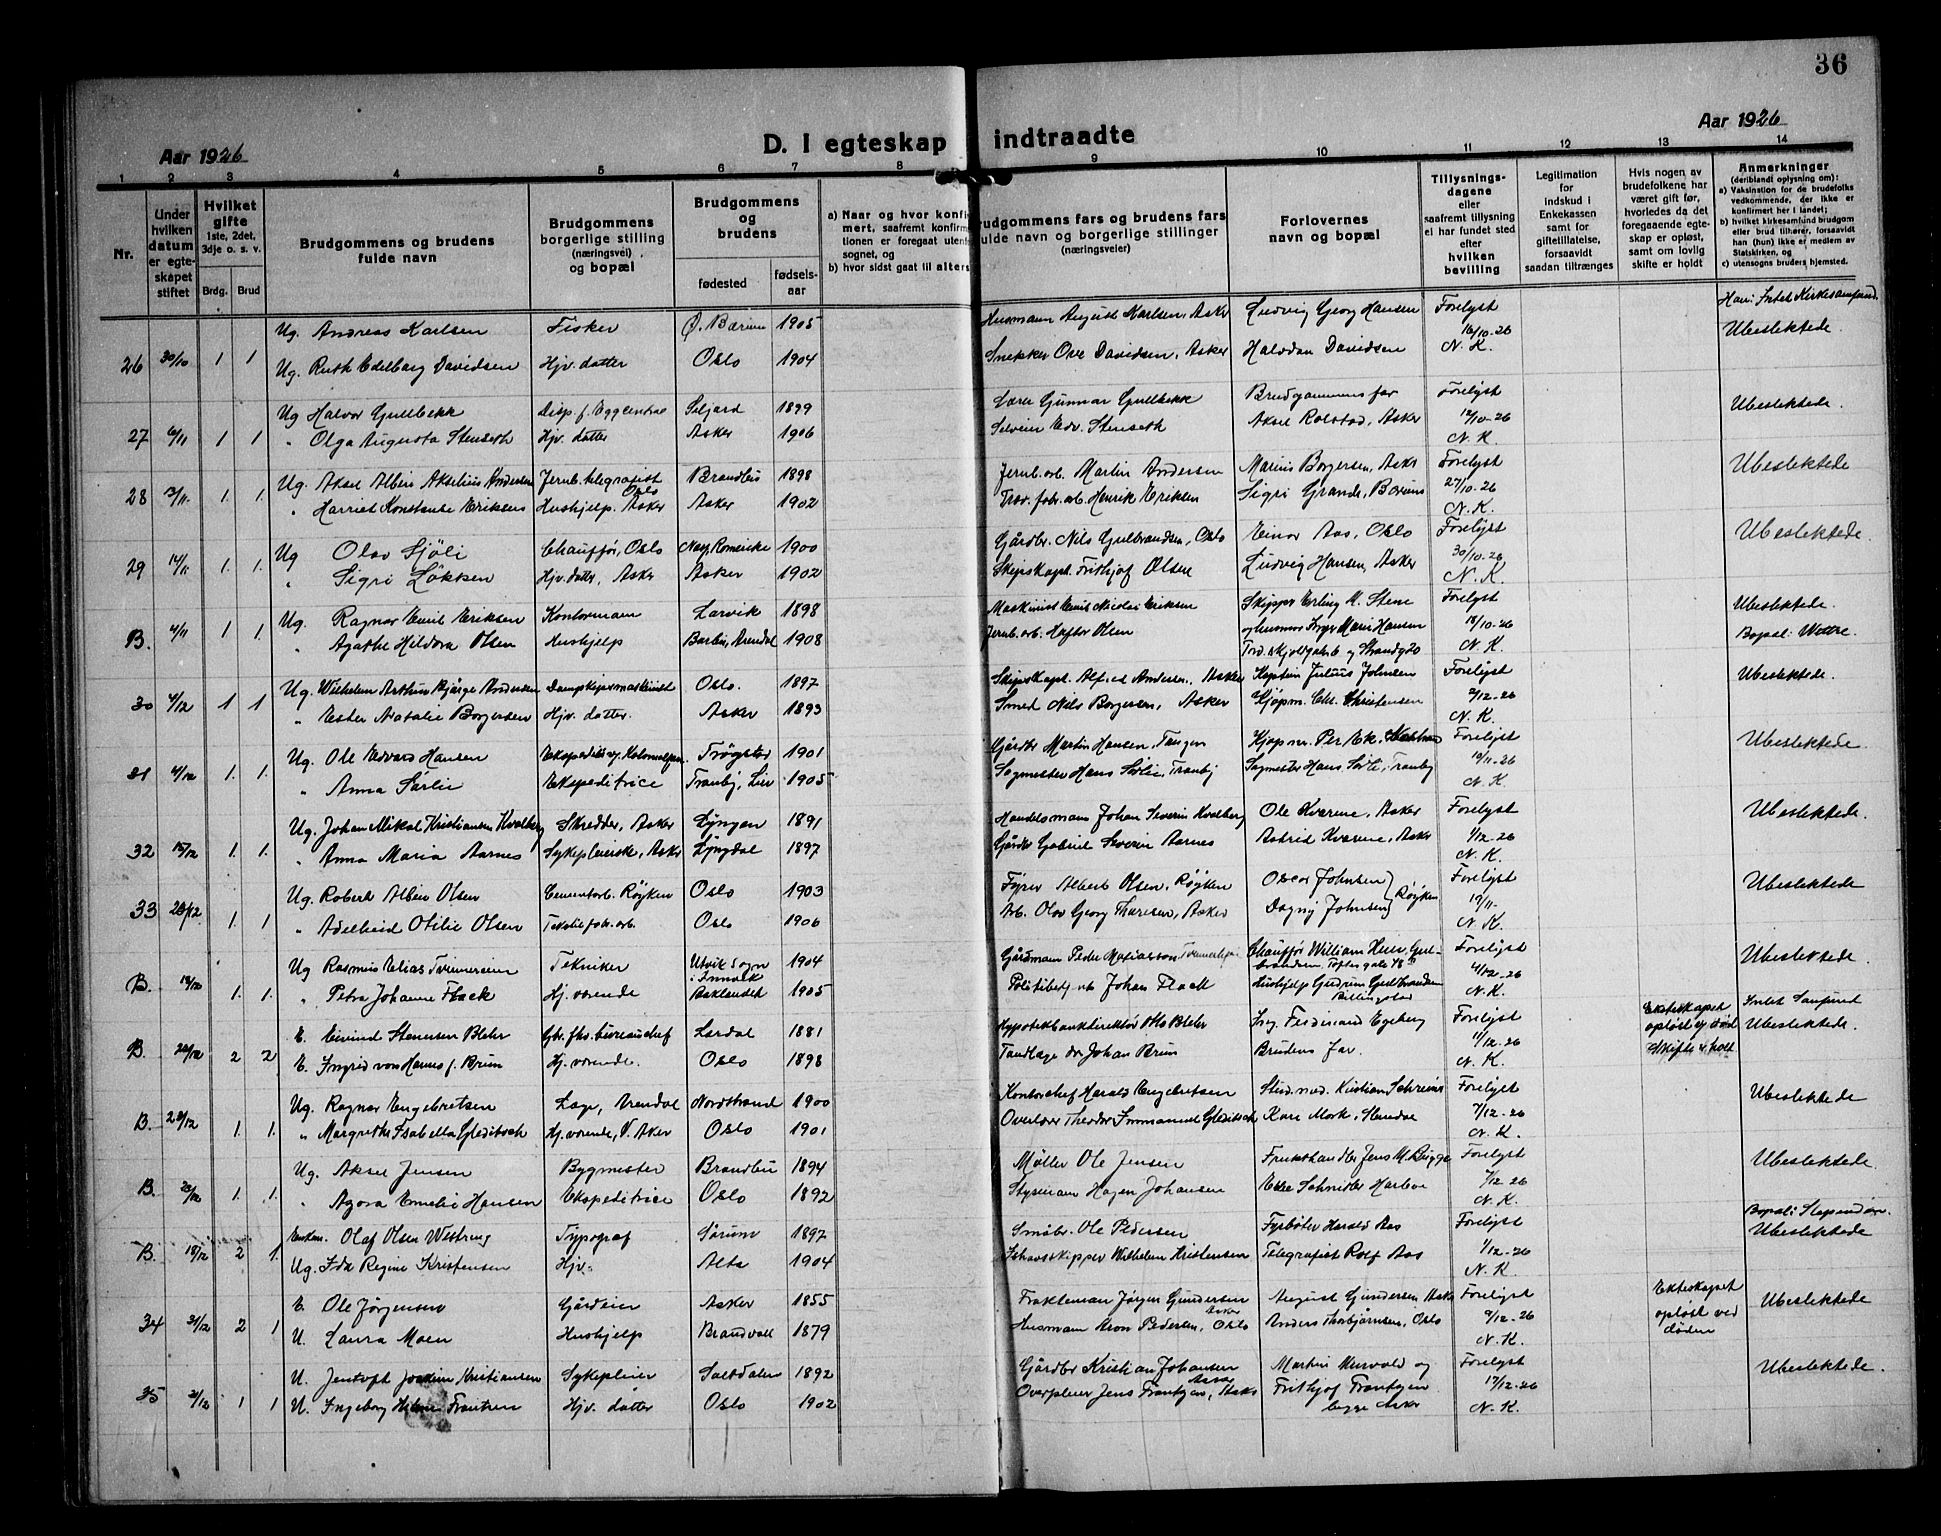 36
Aar 1926
D. I egteskap indtraadte
Aar 1926
1 2 3 4 5 6 7 8 9 10 11 12 13 14
Nr.
Under hvilken datum er egteskapet stiftet
Hvilket gifte 1ste, 2det, 3dje o. s. v.
Brdg. Brud
Brudgommens og brudens fulde navn
Brudgommens borgerlige stilling (næringsvei) og bopæl
Brudgommens og brudens
fødested
fødselsaar
a) Naar og hvor konfi
mert, saafremt konfirma
tionen er foregaat utenfo
sognet, og
b) hvor sidst gaat til alters
rudgommens fars og brudens fars
fulde navn og borgerlige stillinger
(næringsveier)
Forlovernes navn og bopæl
Tillysningsdagene eller saafremt tillysning ei har fundet sted efter hvilken bevilling
Legitimation for indskud i Enkekassen samt for giftetillatelse, forsaavidt saadan tiltrænges
Hvis nogen av brudefolkene har været gift før, hvorledes da det foregaaende egteskap er opløst, samt om lovlig skifte er holdt
Anmerkninger
(deriblandt oplysning om):
a) Vaksination for de brudefolks vedkommende, der ikke er konfirmert her i landet;
b) hvilket kirkesamfund brudgom eller brud tilhører, forsaavidt han (hun) ikke er medlem av Statskirken, og
c) utensogns bruders hjemsted.
Ug. Andreas Karlsen Fisker Ø. Bærum 1905 Husmann August Karlsen, Asker Ludvig Georg Hansen Forelyst Han: Intet Kirkesamfund.
26 30/10 1 1 Ug. Ruth Edelborg Davidsen Hjv. datter Oslo 1904 Snekker Ove Davidsen, Asker Halvdan Davidsen 16/10-26 N. K. Ubeslektede
Ug Halvor Gullbekk Disp. f. Eggcentral Seljord 1899 Lærer Gunnar Gullbekk Brudgommens far Forelyst Ubeslektede.
27 6/11 1 1 " Olga Augusta Stenseth Hjv. datter Asker 1906 Edv. Stenseth Aksel Rolstad, Asker 12/10-26 N. K.
Ug. Aksel Albin Akselius Andersen Jernb. telegrafist Oslo Brandbu 1898 Jernb. arb. Martin Andersen Marius Borgersen, Asker Forelyst Ubeslektede
28 13/11 1. 1. " Harriet Konstanse Eriksen Hushjelp. Asker Asker 1902 Træv. fabr. arb. Henrik Eriksen Sigri Grande, Bærum 27/10-26 N. K.
Ug Olav Sjøli Chauffør, Oslo Nes, Romerike 1900 Gårdbr. Nils Gulbrandsen, Oslo Einar Aas, Oslo Forelyst Ubeslektede.
29 14/11 1. 1. " Sigri Løkken Hjv. datter, Asker Asker 1902 Skipskapt. Frithjof Olsen Ludvig Hansen, Asker 30/10-26 N. K.
Ug. Ragnar Emil Eriksen Kontormann Larvik 1898 Maskinist Emil Nicolai Eriksen Skipper Erling M. Stene Forelyst Ubeslektede.
B. 4/11 1 1. " Agathe Hildora Olsen Hushjelp Barbu, Arendal 1908 Jernb. arb. Haftor Olsen og husmor Inger Marie Hansen 18/10-26 Bopæl: Wettre.
Tordenskjoldsgate 6 og Strandg 20 N. K.
Ug. Wilhelm Arthur Bjarge Andersen Dampskipsmaskinist Oslo. 1897 Skipskapt. Alfred Andersen, Asker Kaptein Julius Johnsen Forelyst Ubeslektede.
30 4/12 1 1 " Ester Natalie Borgersen Hjv. datter. Asker 1893 Smed Nils Borgersen, Asker Kjøpm. Chr. Christensen 2/12-26 N. K.
Ug. Ole Edvard Hansen Trøgstad 1901 Gårdbr Martin Hansen, Tangen Kjøpm. Per Ek, Forelyst Ubeslektede.
31 4/12 1. 1. " Anna Sørlie Ekspeditrice Tranby, Lier 1905 Sagmester Hans Sørlie, Tranby Sagmester Hans Sørlie, Tranby 10/11-26 N. K.
Ug. Johan Mikal Kristiansen Kvalberg Skredder, Asker Lyngen 1891 Handelsmann Johan Severin Kvalberg Ole Kværne, Asker Forelyst Ubeslektede.
32 15/12 1. 1. " Anna Maria Aarnes Sykepleierske, Asker Lyngdal 1897 Gårdbr Gabriel Severin Aarnes Astrid Kværne, Asker 1/12-26 N. K.
Ug. Robert Albin Olsen Cementarb. Røyken Oslo 1903 Fyrer Albert Olsen, Røyken Oscar Johnsen Forelyst Ubeslektede
33 1. 1 " Adelheid Otilie Olsen Oslo 1906 Arb. Olov Georg Thoresen, Asker Dagny Johnsen Røyken 19/11- N. K.
Ug Rasmus Elias Tvinnereim Tekniker Utvik Sogn i Innvik 1904 Gårdmann Peder Chauffør William Heim Gulbrandsen, Toftesgate 48 Forelyst Ubeslektede
B. 19/12 1. 1. " Petra Johanne Flack Hj. værende Baklandet 1905 Politibetj. Johan Flack Hushjelp Gudrun Gulbrandsen Billingstad 4/12-26 N. K.
E. Eivind Stenersen Blehr bureauchef Lærdal 1881 Hypotekbankdirektør Otto Blehr Ing. Ferdinand Egeberg Forelyst Ekteskapet opløst v. død Skifte e. holdt Intet Samfund
B. 22/12 2 2 E. Ingrid von Hanno f. Bruun Hj. værende. Oslo 1898 Tandlæge dr Johan Brun Brudens far. 11/12-26 N. K. Ubeslektede.
Ug. Ragnar Engebretsen Læge, Arendal Nordstrand 1900 Kontorchef Harald Engebretsen Stud. med. Kristian Schreiner Forelyst Ubeslektede
B. 28/12 1. 1. " Margrethe Isabella Gleditsch Hj. værende, V. Aker Oslo 1901 Overlærer Theodor Immanuel Gleditsch Kari Mork, 7/12-26 N. K.
Ug. Aksel Jensen Bygmester Brandbu 1894 Møller Ole Jensen Frukthandler Jens M. Bugge Forelyst Ubeslektede.
B. 1. 1. " Agora Emelie Hansen Ekspeditrice Oslo 1892 Styrmann Hagen Johansen Else Schnitler Harboe 7/12-26 N. K.
Enkem. Olaf Olsen Westreng Typograf Sørum 1897 Småbr. Ole Pedersen Fyrbøter Harald Aas Forelyst Bopæl: Slependen.
B. 18/12 2 1. Ug. Ida Regine Kristensen Hjv. Alta 1904 Ishavsskipper Wilhelm Kristensen Telegrafist Rolf Aas 1/12-26 N. K. Ubeslektede
E. Ole Jørgensen Gårdeier Asker 1855 Fraktemann Jørgen Gundersen Asker August Gundersen, Asker Forelyst Ekteskapet opløst ved døden Ubeslektede
34 31/12 2 1 U. Laura Moen Hushjelp Brandvoll 1879 Husmann Aron Pedersen, Oslo Anders Thorbjørnsen, Oslo 9/12-26 N. K.
U. Jentoft Joakim Kristiansen Sykepleier Saltdalen 1892 Gårdbr Kristian Johansen Martin og Forelyst Ubeslektede.
35 31/12 1 1 U. Ingeborg Frantzen Hjv. datter Oslo 1902 Overpleier Jens Frantzen, Asker Frithjof Frantzen begge Asker 17/12-26 N. K.